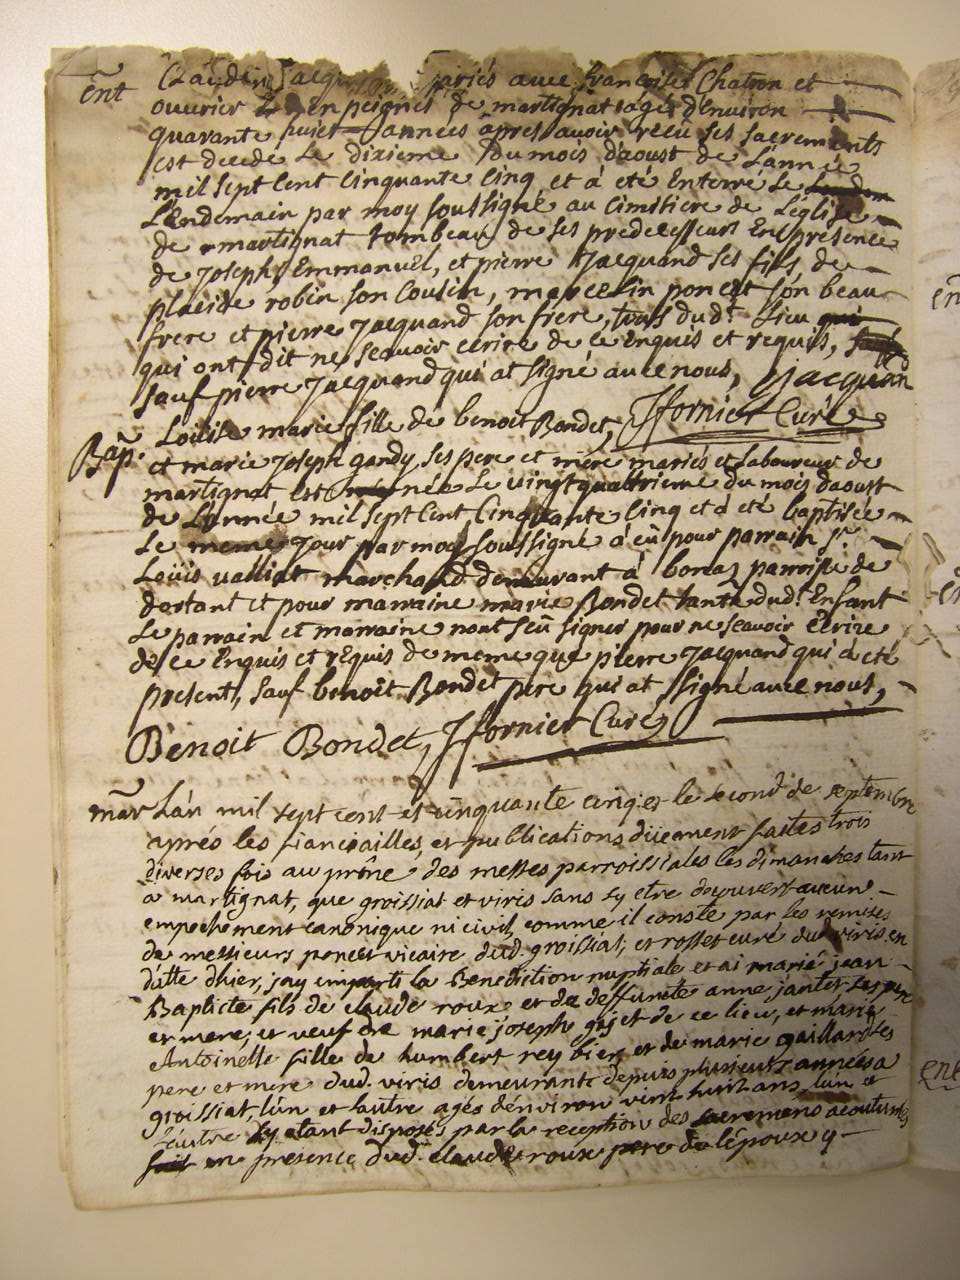 ent Claudin Jacquand mariés avec françoise Chatron et
ouvrier en peignes de martignat agés d'Environ
quarante huict années âpres avoir reçu ses sacrements
est decedé Le dixieme du mois d'aoust de L'année
mil sept Cent Cinquante Cinq et à eté Enterré Le
L'Endemain par moy soussigné au Cimitiere de L'église
de martignat tombeau de ses predecesseurs En presence
de Joseph, Emmanuel, et pierre Jacquand ses fils, de
placide robin son Cousin, marcelin poncet son beau
frere et pierre Jacquand son frere, tous dud.t Lieu
qui ont dit ne sçavoir écrire de ce Enquis et requis,
sauf pierre Jacquand qui at signé avec nous, Jacquan
Bap. Louise marie fille de benoit Bondet, Jfornier Curé
et marie Joseph gandy ses pere et mére mariés et Laboureur de
martignat est née Le vingt quattrieme du mois d'aoust
de L'année mil sept Cent Cinquante Cinq et a eté baptisée
Le meme Jour par moy soussigné a eû pour parrain sr
Loüis valliat marchand demeurant à bonaz parroisse de
dortant et pour marraine marie Bondet tante dud.t Enfant
Le parrain et marraine n'ont seü signer pour ne sçavoir Ecrire
de ce Enquis et rEquis de meme que pierre Jacquand qui a eté
present, sauf benoit Bondet pere qui at signé avec nous,
Benoit Bondet, Jfornier Curé,
mar L'an mil sept cent et cinquante cinq et le second de septembre
aprés les fiançailles, et publications düement faites trois
diverses fois au prône des messes parroissiales les dimanches tant
a martignat, que groissiat et viris sans s'y etre decouvert aucun
empechement canonique ni civil, comme il conste par les remises
de messieurs poncet vicaire dud. groissiat, et rosset curé dud. viris en
datte d'hier, j'ay imparti la Benediction nuptiale et ai marié jean
Baptiste fils de claude roux et de deffuncte anne jantet ses pere
et mere, et veuf de marie josephe gojet de ce lieu, et marie
Antoinette fille de humbert rey bier et de marie gaillard ses
pere et mere dud. viris demeurante depuis plusieurs années a
groissiat, l'un et l'autre agés d'environ vint huit ans, l'un et
l'autre s'y etant disposés par la reception des sacremens acoutumés
en presence dud. claude roux pere de l'époux